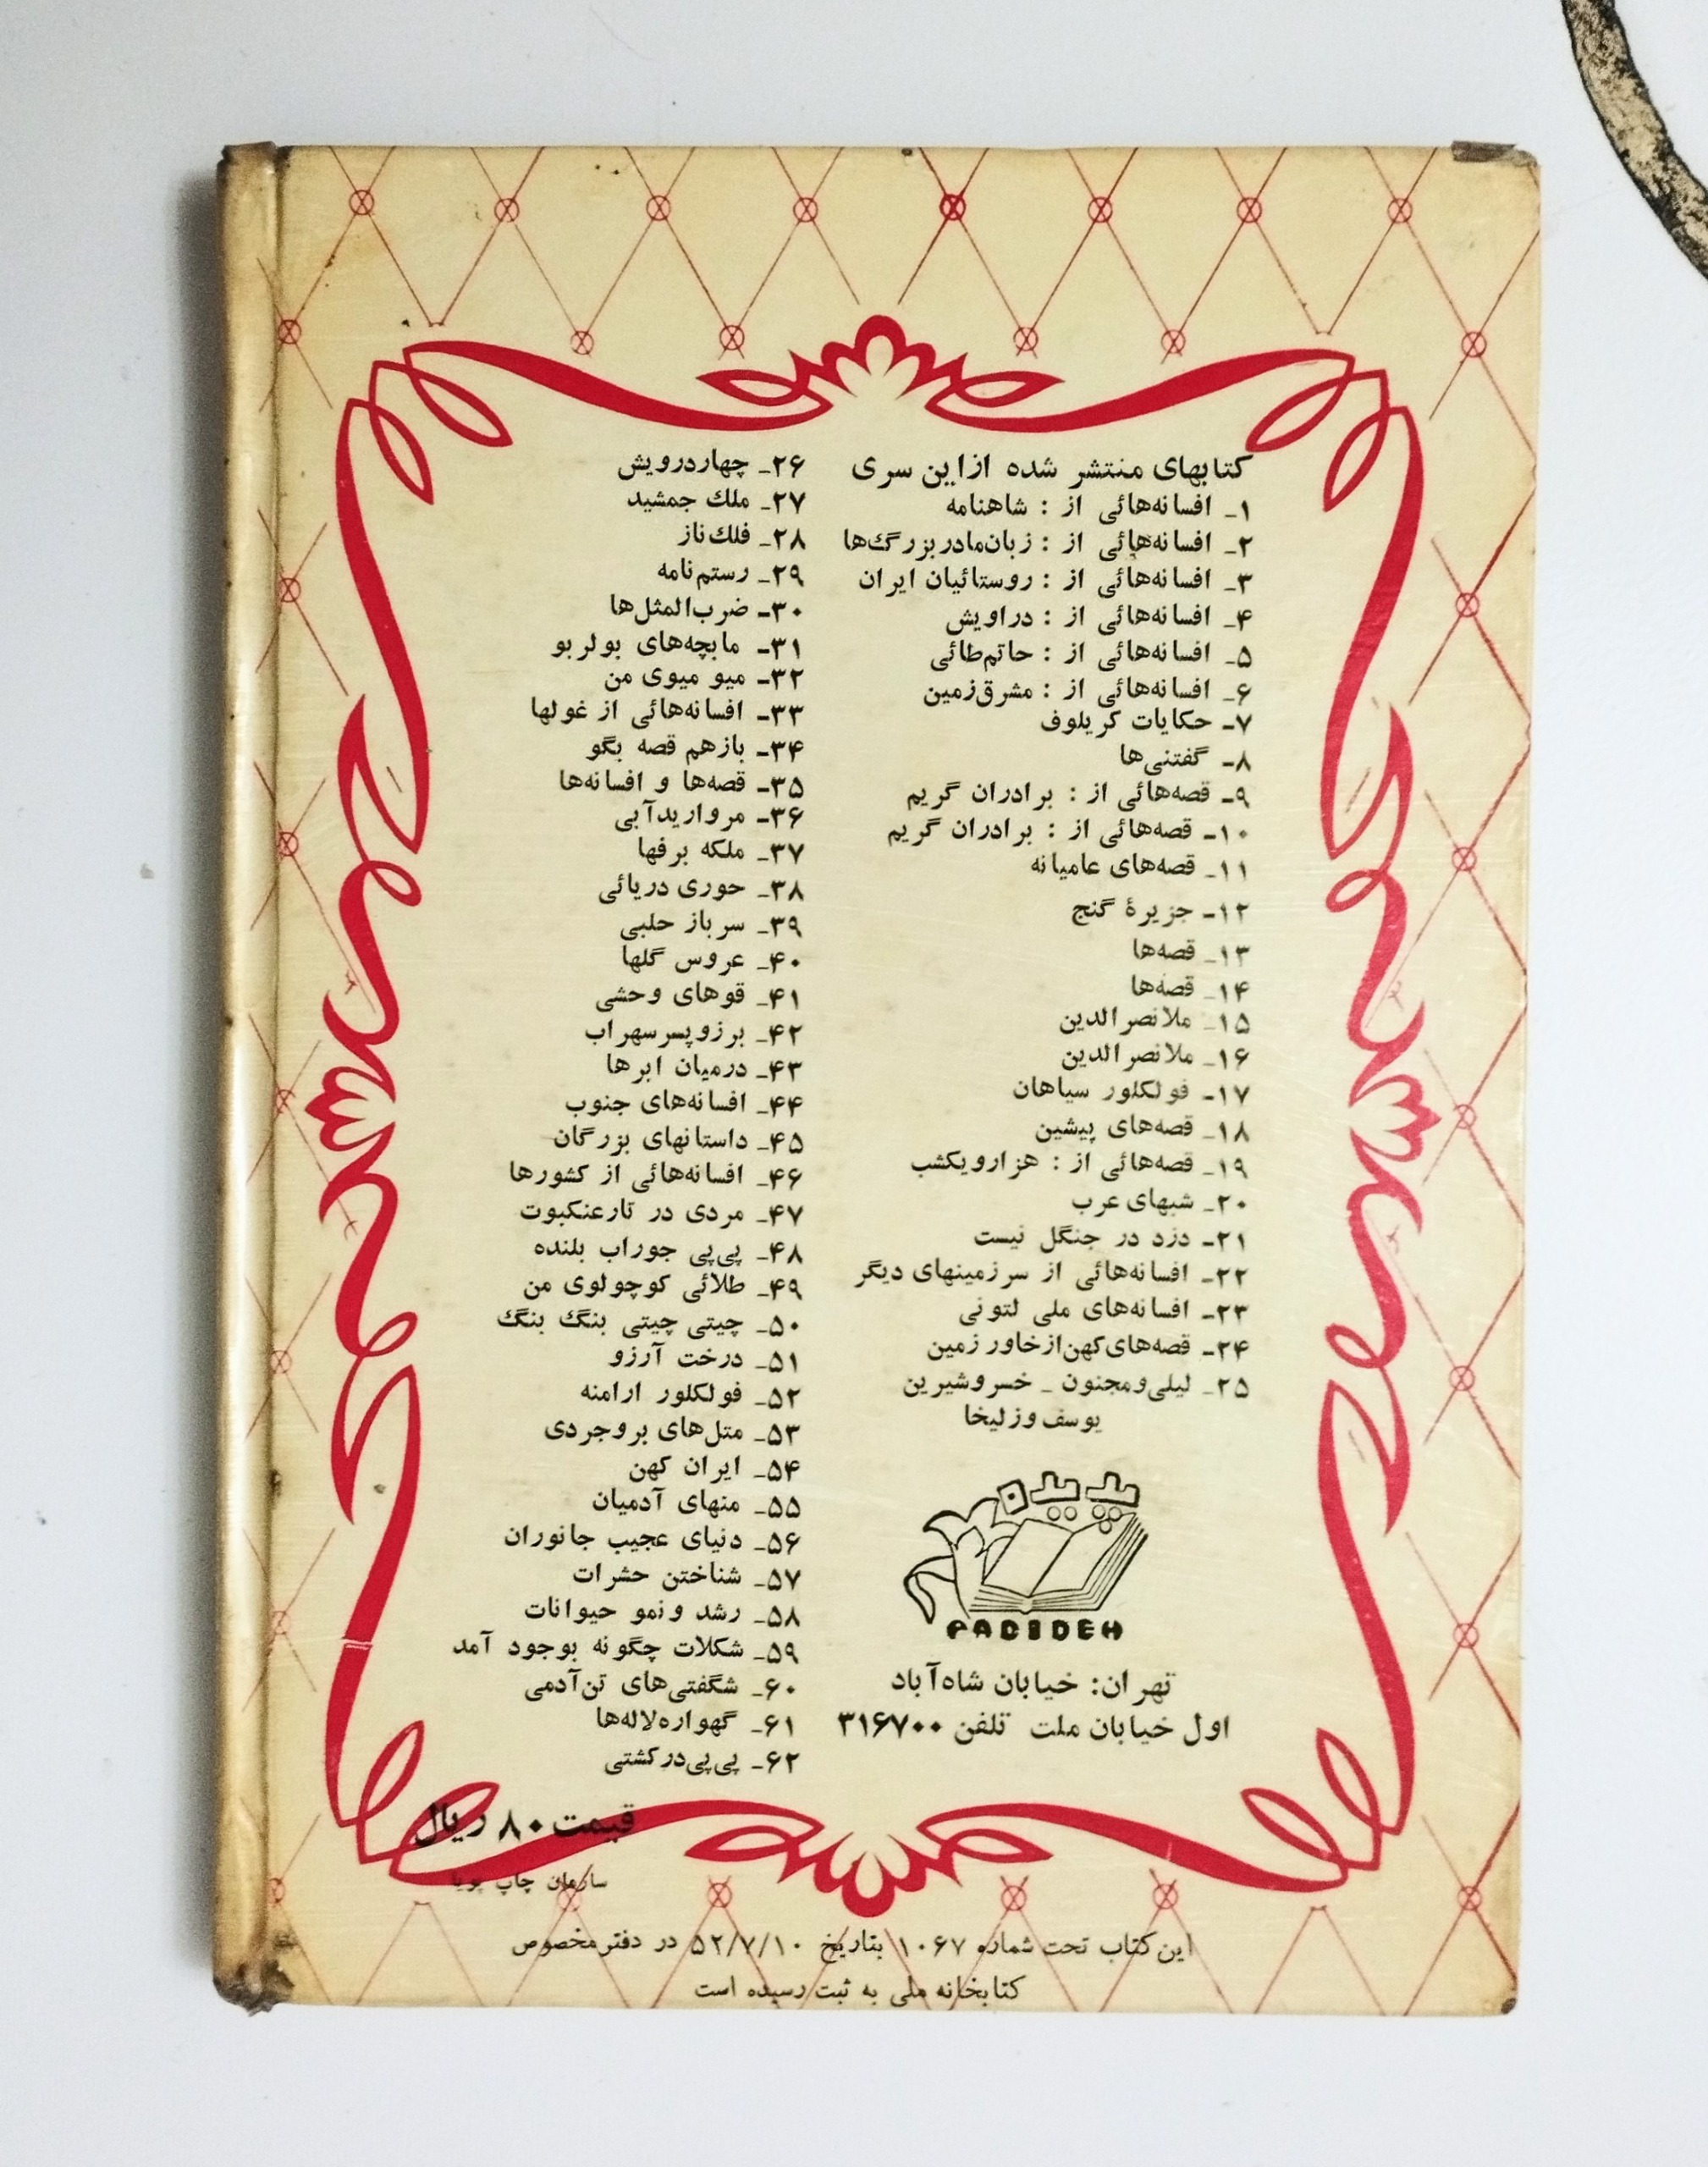 کتابهای منتشر شده ازاین سری
۱ـ افسانه‌هائی از : شاهنامه
۲ـ افسانه‌هائی از : زبان‌مادربزرگ‌ها
۳ـ افسانه‌هائی از : روستائیان ایران
۴ـ افسانه‌هائی از : دراویش
۵ـ افسانه‌هائی از : حاتم‌طائی
۶ـ افسانه‌هائی از : مشرق‌زمین
۷ـ حکایات کریلوف
۸ـ گفتنی‌ها
۹ـ قصه‌هائی از : برادران گریم
۱۰ـ قصه‌هائی از : برادران گریم
۱۱ـ قصه‌های عامیانه
۱۲ـ جزیرهٔ گنج
۱۳ـ قصه‌ها
۱۴ـ قصه‌ها
۱۵ـ ملانصرالدین
۱۶ـ ملانصرالدین
۱۷ـ فولکلور سیاهان
۱۸ـ قصه‌های پیشین
۱۹ـ قصه‌هائی از : هزارویکشب
۲۰ـ شبهای عرب
۲۱ـ دزد در جنگل نیست
۲۲ـ افسانه‌هائی از سرزمینهای دیگر
۲۳ـ افسانه‌های ملی لتونی
۲۴ـ قصه‌های‌کهن‌ازخاور زمین
۲۵ـ لیلی‌ومجنون ـ خسروشیرین
یوسف وزلیخا
پدیده
PADIDEH
تهران: خیابان شاه‌آباد
اول خیابان ملت تلفن ۳۱۶۷۰۰
۲۶ـ چهاردرویش
۲۷ـ ملك جمشید
۲۸ـ فلك‌ناز
۲۹ـ رستم‌نامه
۳۰ـ ضرب‌المثل‌ها
۳۱ـ مابچه‌های بولربو
۳۲ـ میو میوی من
۳۳ـ افسانه‌هائی از غولها
۳۴ـ بازهم قصه بگو
۳۵ـ قصه‌ها و افسانه‌ها
۳۶ـ مرواریدآبی
۳۷ـ ملکه برفها
۳۸ـ حوری دریائی
۳۹ـ سرباز حلبی
۴۰ـ عروس گلها
۴۱ـ قوهای وحشی
۴۲ـ برزوپسرسهراب
۴۳ـ درمیان ابرها
۴۴ـ افسانه‌های جنوب
۴۵ـ داستانهای بزرگان
۴۶ـ افسانه‌هائی از کشورها
۴۷ـ مردی در تارعنکبوت
۴۸ـ پی‌پی جوراب بلنده
۴۹ـ طلائی کوچولوی من
۵۰ـ چیتی چیتی بنگ بنگ
۵۱ـ درخت آرزو
۵۲ـ فولکلور ارامنه
۵۳ـ متل‌های بروجردی
۵۴ـ ایران کهن
۵۵ـ منهای آدمیان
۵۶ـ دنیای عجیب جانوران
۵۷ـ شناختن حشرات
۵۸ـ رشد ونمو حیوانات
۵۹ـ شکلات چگونه بوجود آمد
۶۰ـ شگفتی‌های تن‌آدمی
۶۱ـ گهواره‌لاله‌ها
۶۲ـ پی‌پی‌درکشتی
قیمت ۸۰ ریال
سازمان چاپ پویا
این‌کتاب تحت شماره ۱۰۶۷ بتاریخ ۵۲/۷/۱۰ در دفترمخصوص
کتابخانه ملی به ثبت رسیده است